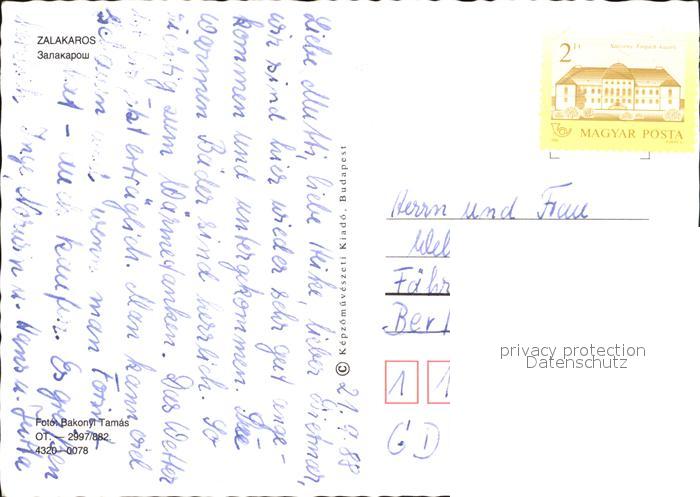 ZALAKAROS
Залакарош
Liebe Mutti, liebe Heike, lieber Dietmar,
wir sind hier wieder sehr gut ange-
kommen und untergekommen. Die
warmen Bäder sind herrlich. So
richtig zum Wärmetanken. Das Wetter
ist erträglich. Man kann viel
wenn man Forint
hat - auch kaufen. Es grüßen
Inge, u. Hans u. Jutta
21.9.88
Foto: Bakonyi Tamás
OT. — 2997/882
4320—0078
© Képzőművészeti Kiadó, Budapest
2 Ft
MAGYAR POSTA
Herrn und Frau
Wel
Fähr
Berl
1 1
privacy protection
Datenschutz